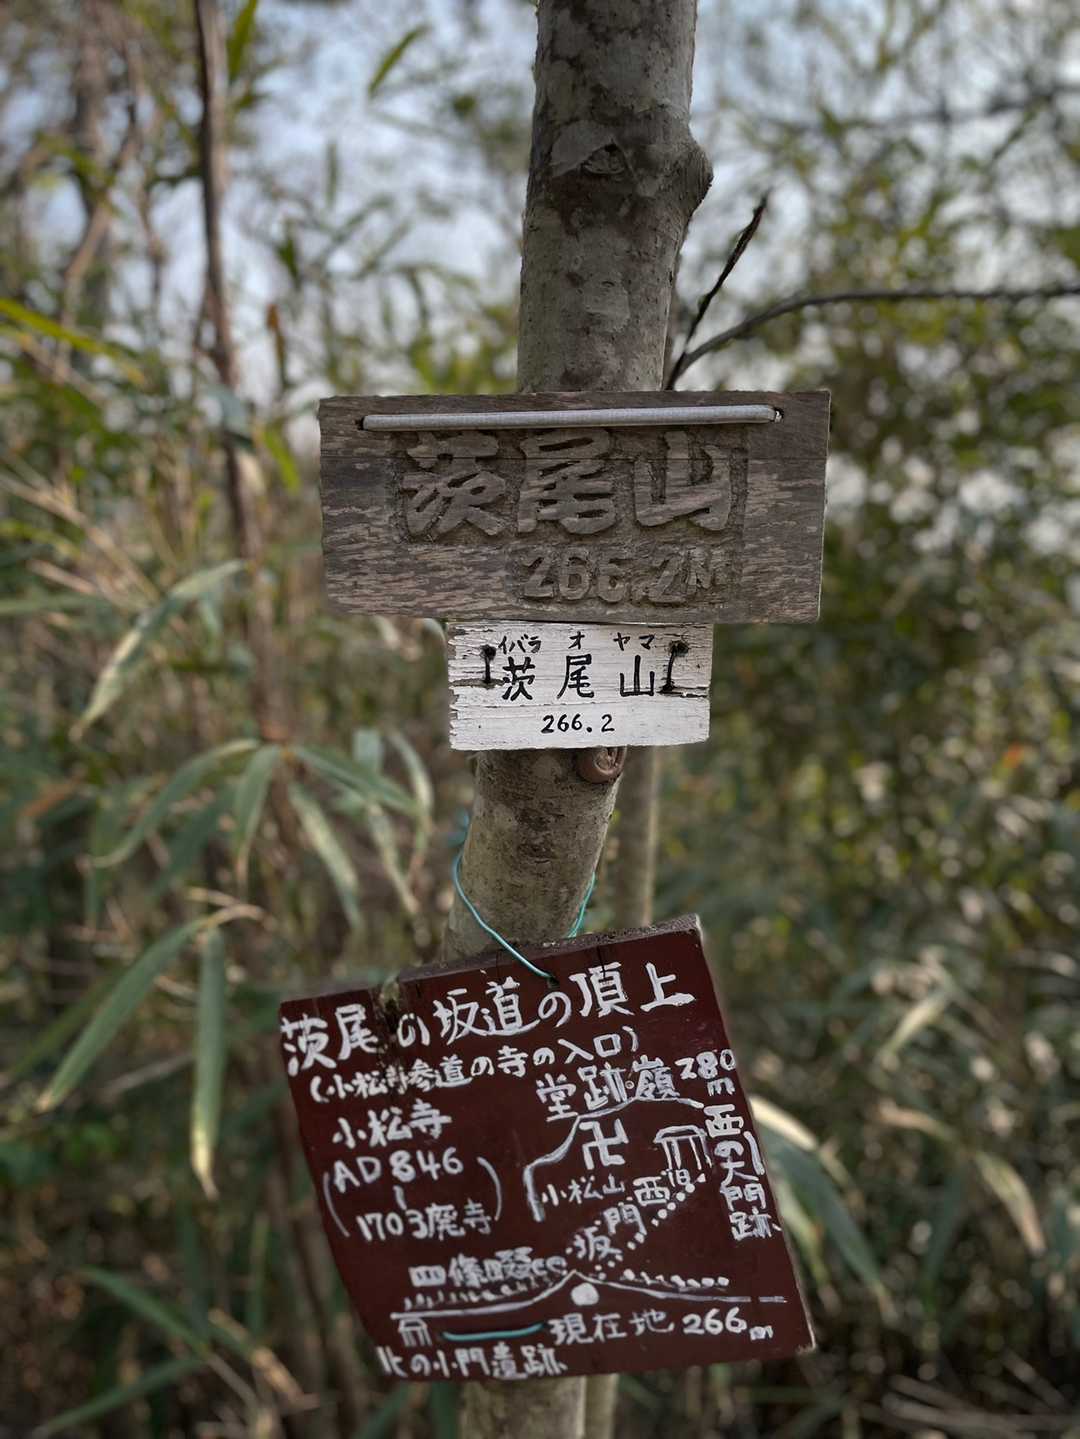 茨尾山
266.2M
イバラ オ ヤマ
茨尾山
266.2
茨尾の坂道の頂上
(小松寺参道の寺の入口)
小松寺
(AD846
〜
1703廃寺)
堂跡嶺 280m
卍
小松山
西の大門跡
旧西門坂
四條畷cc
現在地 266m
北の小門遺跡